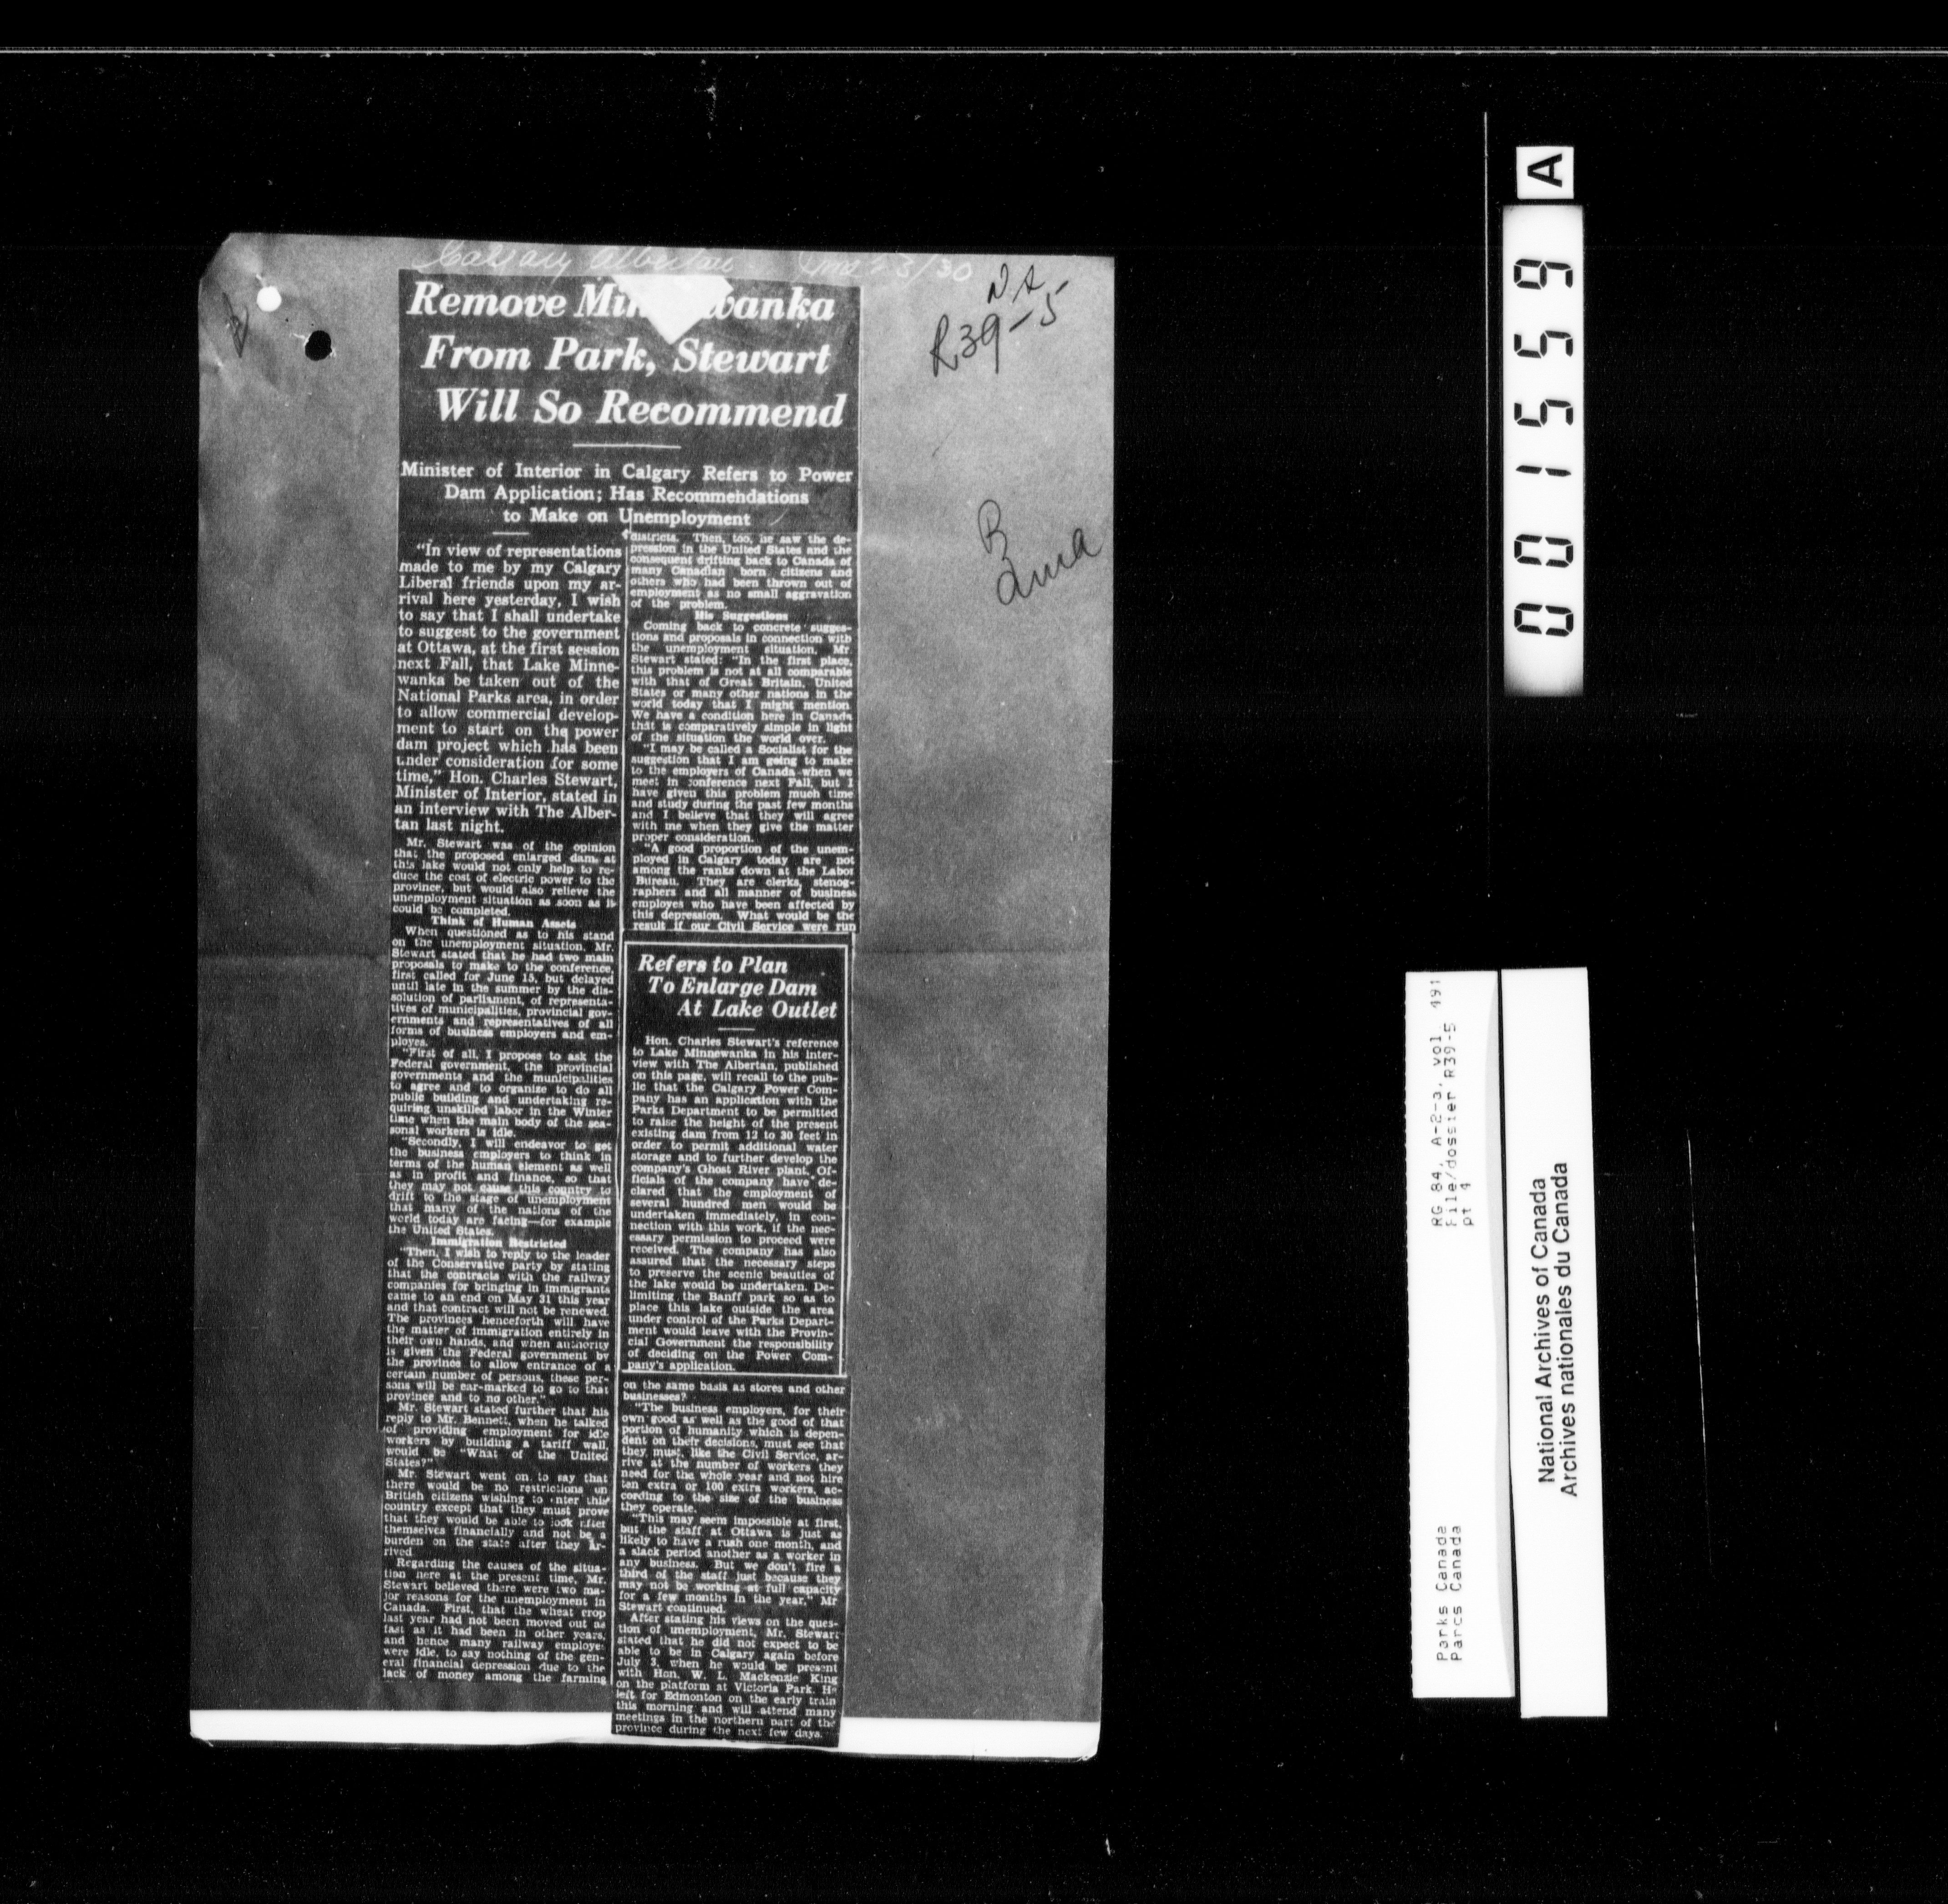 Calgary Albertan June 23/30
R39-5
Remove Minnewanka
From Park, Stewart
Will So Recommend
Minister of Interior in Calgary Refers to Power
Dam Application; Has Recommendations
to Make on Unemployment
"In view of representations
made to me by my Calgary
Liberal friends upon my ar-
rival here yesterday, I wish
to say that I shall undertake
to suggest to the government
at Ottawa, at the first session
next Fall, that Lake Minne-
wanka be taken out of the
National Parks area, in order
to allow commercial develop-
ment to start on the power
dam project which has been
under consideration for some
time," Hon. Charles Stewart,
Minister of Interior, stated in
an interview with The Alber-
tan last night.
Mr. Stewart was of the opinion
that the proposed enlarged dam at
this lake would not only help to re-
duce the cost of electric power to the
province, but would also relieve the
unemployment situation as soon as it
could be completed.
Think of Human Assets
When questioned as to his stand
on the unemployment situation, Mr.
Stewart stated that he had two main
proposals to make to the conference,
first called for June 15, but delayed
until late in the summer by the dis-
solution of parliament, of representa-
tives of municipalities, provincial gov-
ernments and representatives of all
forms of business employers and em-
ployes.
"First of all, I propose to ask the
Federal government, the provincial
governments and the municipalities
to agree and to organize to do all
public building and undertaking re-
quiring unskilled labor in the Winter
time when the main body of the sea-
sonal workers is idle.
"Secondly, I will endeavor to get
the business employers to think in
terms of the human element as well
as in profit and finance, so that
they may not cause this country to
drift to the stage of unemployment
that many of the nations of the
world today are facing—for example
the United States.
Immigration Restricted
"Then, I wish to reply to the leader
of the Conservative party by stating
that the contracts with the railway
companies for bringing in immigrants
came to an end on May 31 this year
and that contract will not be renewed.
The provinces henceforth will have
the matter of immigration entirely in
their own hands, and when authority
is given the Federal government by
the province to allow entrance of a
certain number of persons, these per-
sons will be ear-marked to go to that
province and to no other."
Mr. Stewart stated further that his
reply to Mr. Bennett, when he talked
of providing employment for idle
workers by building a tariff wall,
would be "What of the United
States?"
Mr. Stewart went on to say that
there would be no restrictions on
British citizens wishing to enter this
country except that they must prove
that they would be able to look after
themselves financially and not be a
burden on the state after they ar-
rived.
Regarding the causes of the situa-
tion here at the present time, Mr.
Stewart believed there were two ma-
jor reasons for the unemployment in
Canada. First, that the wheat crop
last year had not been moved out as
fast as it had been in other years,
and hence many railway employes
were idle, to say nothing of the gen-
eral financial depression due to the
lack of money among the farming
districts. Then, too, he saw the de-
pression in the United States and the
consequent drifting back to Canada of
many Canadian born citizens and
others who had been thrown out of
employment as no small aggravation
of the problem.
His Suggestions
Coming back to concrete sugges-
tions and proposals in connection with
the unemployment situation, Mr.
Stewart stated: "In the first place,
this problem is not at all comparable
with that of Great Britain, United
States or many other nations in the
world today that I might mention.
We have a condition here in Canada
that is comparatively simple in light
of the situation the world over.
"I may be called a Socialist for the
suggestion that I am going to make
to the employers of Canada when we
meet in conference next Fall, but I
have given this problem much time
and study during the past few months
and I believe that they will agree
with me when they give the matter
proper consideration.
"A good proportion of the unem-
ployed in Calgary today are not
among the ranks down at the Labor
Bureau. They are clerks, stenog-
raphers and all manner of business
employes who have been affected by
this depression. What would be the
result if our Civil Service were run
Refers to Plan
To Enlarge Dam
At Lake Outlet
Hon. Charles Stewart's reference
to Lake Minnewanka in his inter-
view with The Albertan, published
on this page, will recall to the pub-
lic that the Calgary Power Com-
pany has an application with the
Parks Department to be permitted
to raise the height of the present
existing dam from 12 to 30 feet in
order to permit additional water
storage and to further develop the
company's Ghost River plant. Of-
ficials of the company have de-
clared that the employment of
several hundred men would be
undertaken immediately, in con-
nection with this work, if the nec-
essary permission to proceed were
received. The company has also
assured that the necessary steps
to preserve the scenic beauties of
the lake would be undertaken. De-
limiting the Banff park so as to
place this lake outside the area
under control of the Parks Depart-
ment would leave with the Provin-
cial Government the responsibility
of deciding on the Power Com-
pany's application.
on the same basis as stores and other
businesses?
"The business employers, for their
own good as well as the good of that
portion of humanity which is depen-
dent on their decisions, must see that
they must, like the Civil Service, ar-
rive at the number of workers they
need for the whole year and not hire
ten extra or 100 extra workers, ac-
cording to the size of the business
they operate.
"This may seem impossible at first,
but the staff at Ottawa is just as
likely to have a rush one month, and
a slack period another as a worker in
any business. But we don't fire a
third of the staff just because they
may not be working at full capacity
for a few months in the year," Mr
Stewart continued.
After stating his views on the ques-
tion of unemployment, Mr. Stewart
stated that he did not expect to be
able to be in Calgary again before
July 3, when he would be present
with Hon. W. L. Mackenzie King
on the platform at Victoria Park. He
left for Edmonton on the early train
this morning and will attend many
meetings in the northern part of the
province during the next few days.
A
001559
RG 84, A-2-a, vol 491
File/dossier R39-5
pt 4
Parks Canada
Parcs Canada
National Archives of Canada
Archives nationales du Canada